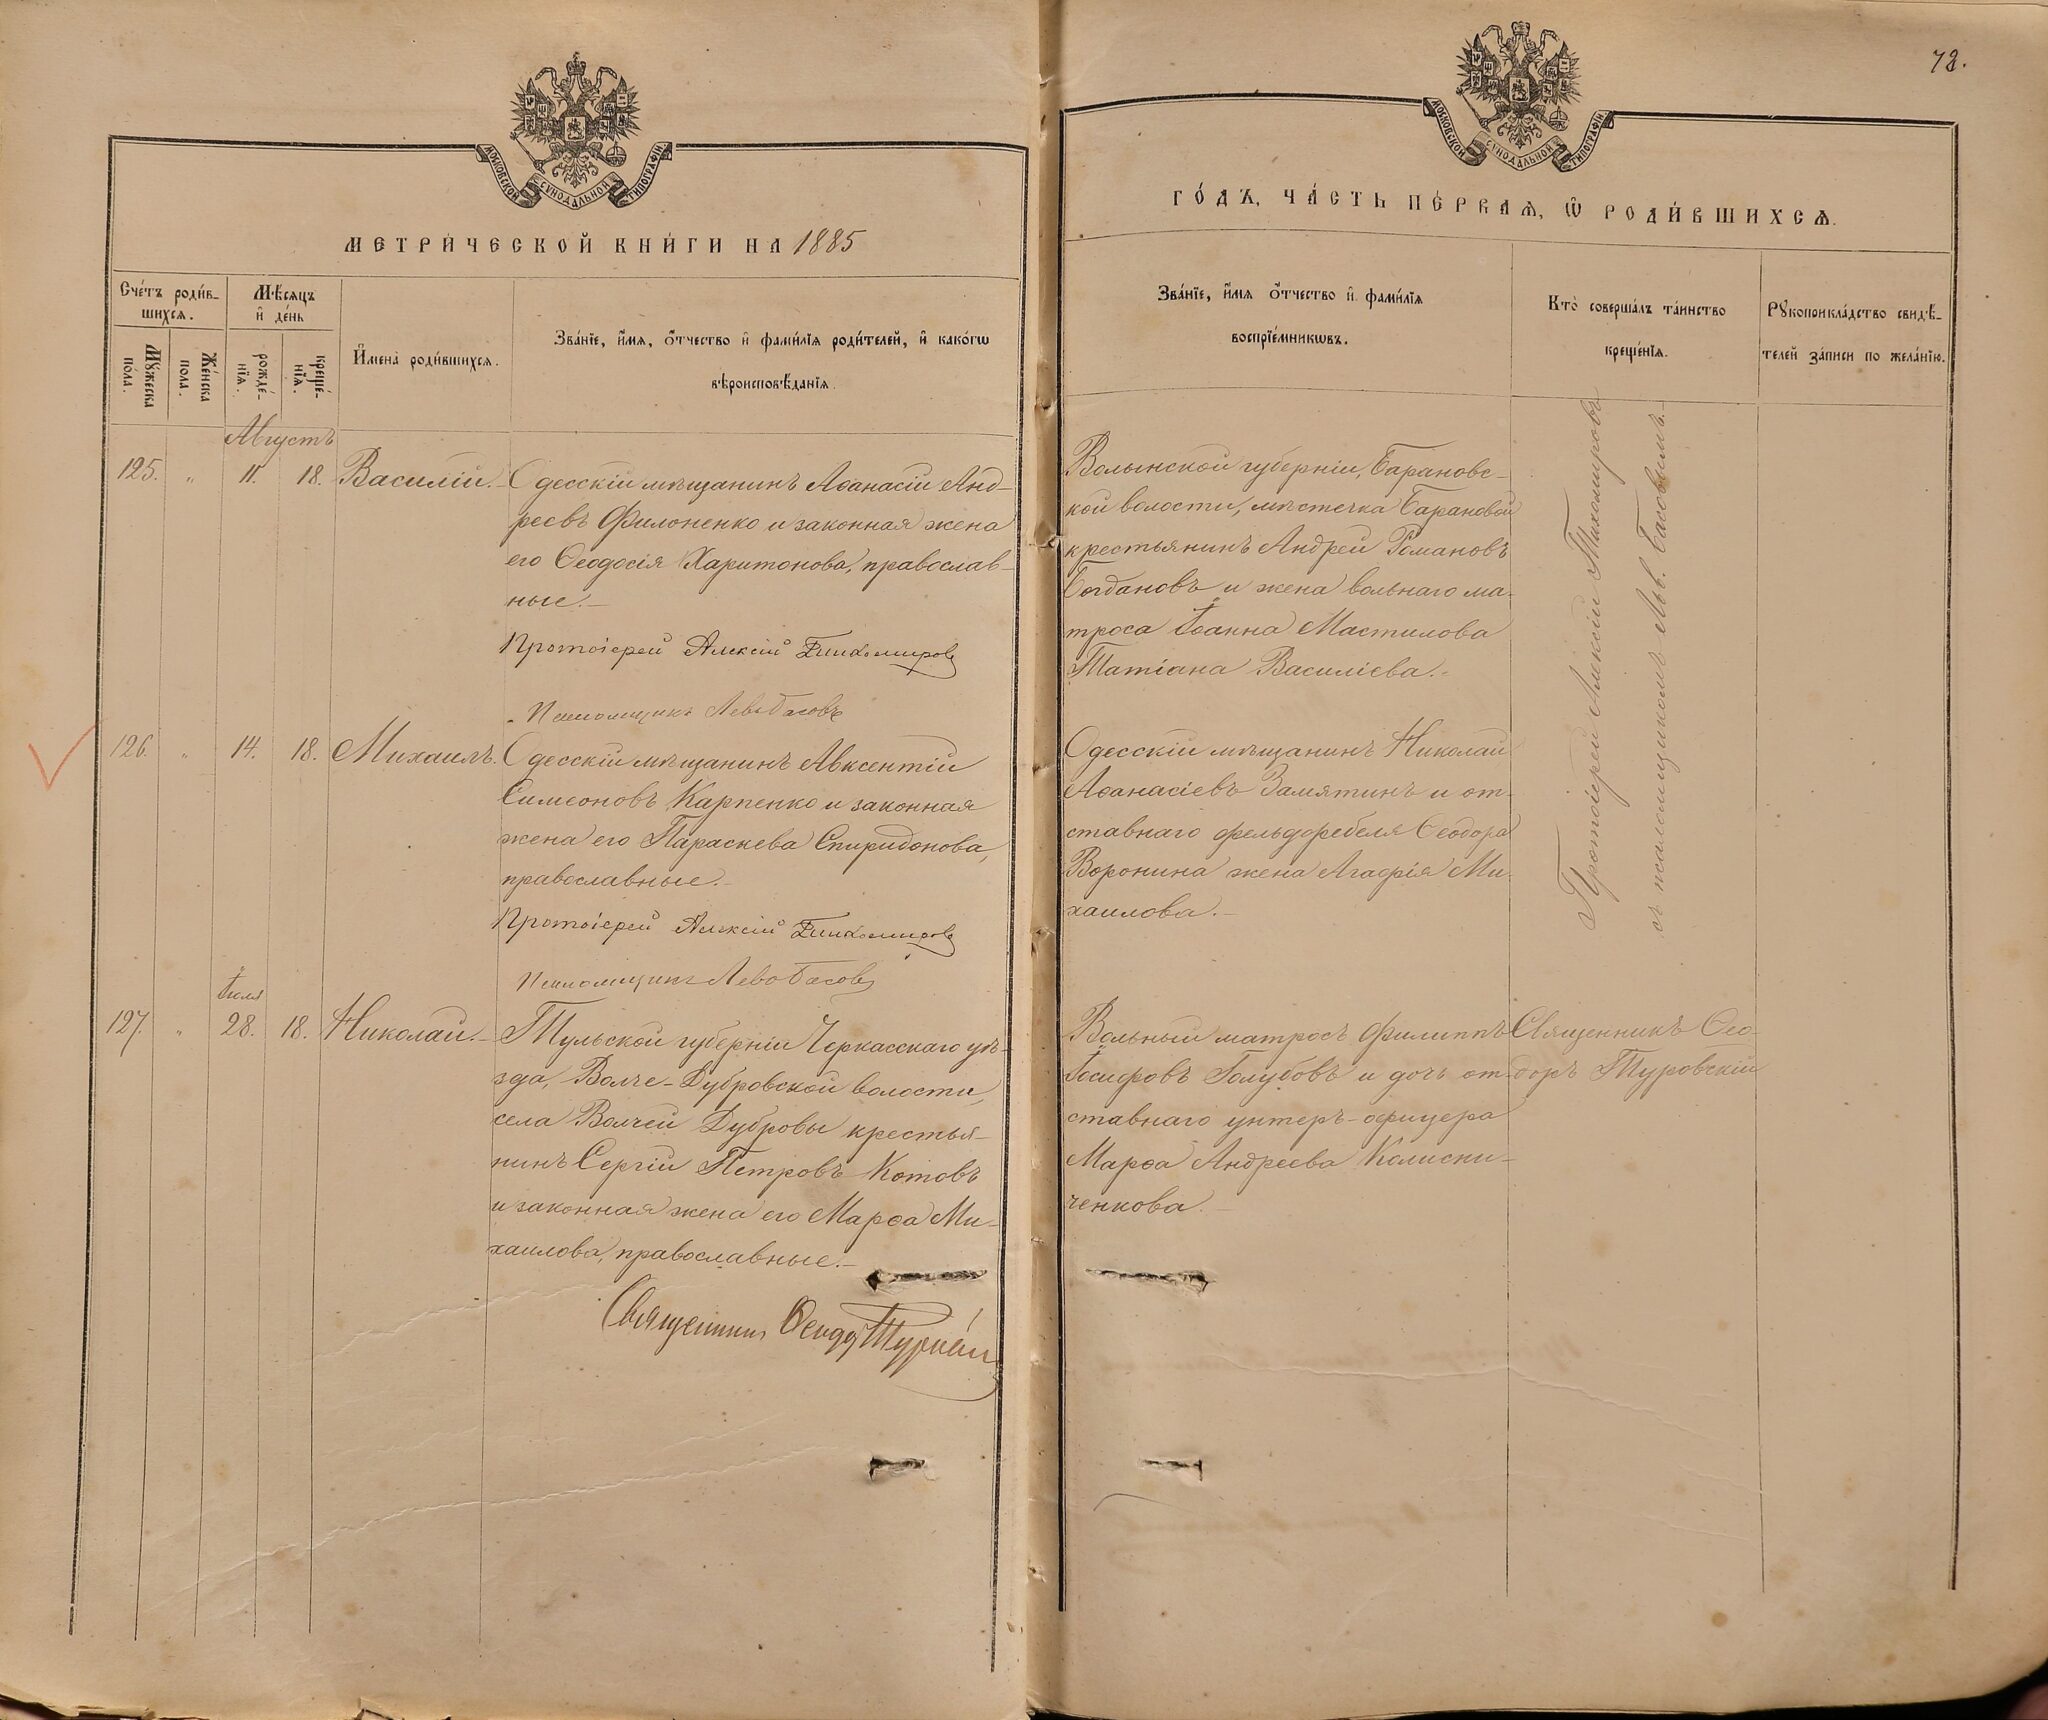 72.
МОСКОВСКОЙ СѴНОДАЛЬНОЙ ТИПОГРАФІИ
МОСКОВСКОЙ СѴНОДАЛЬНОЙ ТИПОГРАФІИ
МЕТРИ́ЧЕСКОЙ КНИ́ГИ НА 1885
ГО́ДЪ, ЧА́СТЬ ПЕ́РВАѦ, Ѡ҆ РОДИ́ВШИХСѦ.
Сче́тъ роди́в-
шихсѧ.
Мѣ́сѧцъ
и҆ де́нь
Мꙋ́жеска
по́ла.
Же́нска
по́ла.
рожде́-
нїѧ.
креще́-
нїѧ.
И҆мена̀ роди́вшихсѧ.
Зва́нїе, и҆́мѧ, ѻ҆́тчество и҆ фами́лїѧ роди́телей, и҆ како́гѡ
вѣроисповѣ́данїѧ.
Зва́нїе, и҆́мѧ ѻ҆́тчество и҆ фами́лїѧ
воспрїе́мникѡвъ.
Кто̀ соверша́лъ та́инство
креще́нїѧ.
Рꙋкоприкла́дство свидѣ́-
телей за́писи по жела́нїю.
Августъ
125. „ 11. 18. Василій.
Одесскій мѣщанинъ Аѳанасій Анд-
реевъ Филоненко и законная жена
его Ѳеодосія Харитонова, православ-
ные.—
Протоіерей Алексій Тихомировъ
Псаломщикъ Левъ Басовъ
Волынской губерніи, Барановс-
кой волости, мѣстечка Барановой
крестьянинъ Андрей Романовъ
Богдановъ и жена вольнаго ма-
троса Іоанна Мастилова
Татіана Василіева.-
Протоіерей Алексій Тихомировъ
съ псаломщикомъ Льв. Басовымъ.—
126. „ 14. 18. Михаилъ.
Одесскій мѣщанинъ Авксентій
Симеоновъ Карпенко и законная
жена его Параскева Спиридонова,
православные.—
Протоіерей Алексій Тихомировъ
Псаломщикъ Левъ Басовъ
Одесскій мѣщанинъ Николай
Аѳанасіевъ Замятинъ и от-
ставнаго фельдфебеля Ѳеодора
Воронина жена Агафія Ми-
хаилова.—
Іюля
127. „ 28. 18. Николай.—
Тульской губерніи Черкасскаго уѣ-
зда, Волче-Дубровской волости,
села Волчей Дубровы крестья-
нинъ Сергій Петровъ Котовъ
и законная жена его Марѳа Ми-
хаилова, православные.—
Священникъ Ѳеодоръ Туровскій
Вольный матросъ Филиппъ
Іосифовъ Голубовъ и дочь от-
ставнаго унтеръ-офицера
Марѳа Андреева Колисни-
ченкова.—
Священникъ Ѳео-
доръ Туровскій